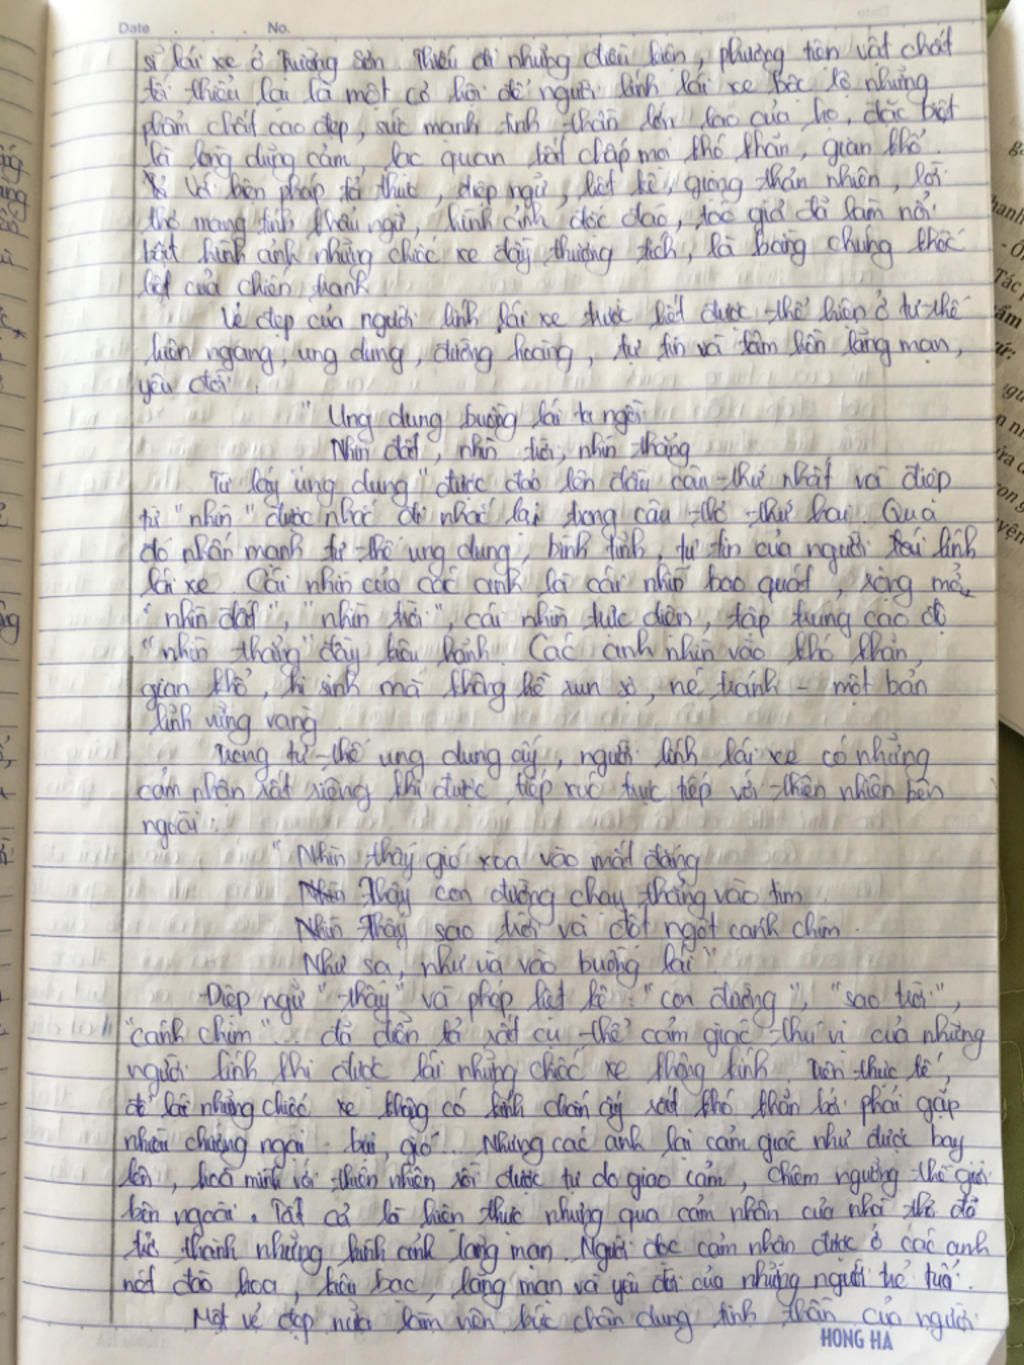 Date . . . . No.
sĩ lái xe ở Trường Sơn. Thiếu đi những điều kiện, phương tiện vật chất
tối thiểu lại là một cơ hội để người lính lái xe bộc lộ những
phẩm chất cao đẹp, sức mạnh tinh thần lớn lao của họ, đặc biệt
là lòng dũng cảm, lạc quan bất chấp mọi khó khăn, gian khổ.
Với biện pháp tả thực, điệp ngữ, liệt kê, giọng thản nhiên, lời
thơ mang tính khẩu ngữ, hình ảnh độc đáo, tác giả đã làm nổi
bật hình ảnh những chiếc xe đầy thương tích, là bằng chứng khốc
liệt của chiến tranh
Vẻ đẹp của người lính lái xe trước hết được thể hiện ở tư thế
hiên ngang, ung dung, đường hoàng, tự tin và tâm hồn lãng mạn,
yêu đời:
" Ung dung buồng lái ta ngồi
Nhìn đất, nhìn trời, nhìn thẳng
Từ láy "ung dung" được đảo lên đầu câu thứ nhất và điệp
từ "nhìn" được nhắc đi nhắc lại trong câu thơ thứ hai. Qua
đó nhấn mạnh tư thế ung dung, bình tĩnh, tự tin của người lính
lái xe. Cái nhìn của các anh là cái nhìn bao quát, rộng mở
"nhìn đất", "nhìn trời", cái nhìn trực diện, tập trung cao độ
"nhìn thẳng" đầy kiêu hãnh. Các anh nhìn vào khó khăn,
gian khổ, hi sinh mà không hề run sợ, né tránh - một bản
lĩnh vững vàng
Trong tư thế ung dung ấy, người lính lái xe có những
cảm nhận rất riêng khi được tiếp xúc trực tiếp với thiên nhiên bên
ngoài:
" Nhìn thấy gió xoa vào mắt đắng
Thấy con đường chạy thẳng vào tim
Nhìn Thấy sao trời và đột ngột cánh chim.
Như sa, như ùa vào buồng lái".
Điệp ngữ "thấy" và phép liệt kê: "con đường", "sao trời",
"cánh chim"... đã diễn tả rất cụ thể cảm giác thú vị của những
người lính khi được lái những chiếc xe không kính. Trên thực tế,
lái những chiếc xe không có kính chắn ấy rất khó khăn bởi phải gặp
nhiều chướng ngại: bụi, gió... Nhưng các anh lại cảm giác như được bay
lên, hoà mình với thiên nhiên rồi được tự do giao cảm, chiêm ngưỡng thế giới
bên ngoài. Tất cả là hiện thực nhưng qua cảm nhận của nhà thơ đã
trở thành những hình ảnh lãng mạn. Người đọc cảm nhận được ở các anh
nét đào hoa, kiêu bạc, lãng mạn và yêu đời của những người trẻ tuổi.
Một vẻ đẹp nữa làm nên bức chân dung tinh thần của người
HONG HA